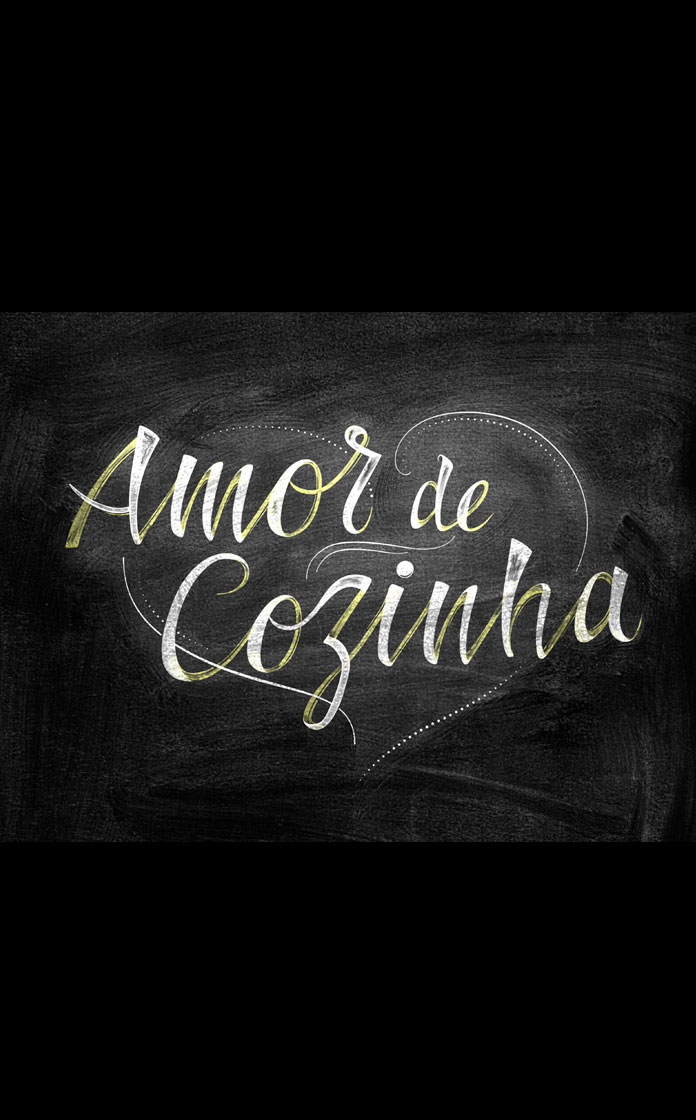 Amor de
Cozinha